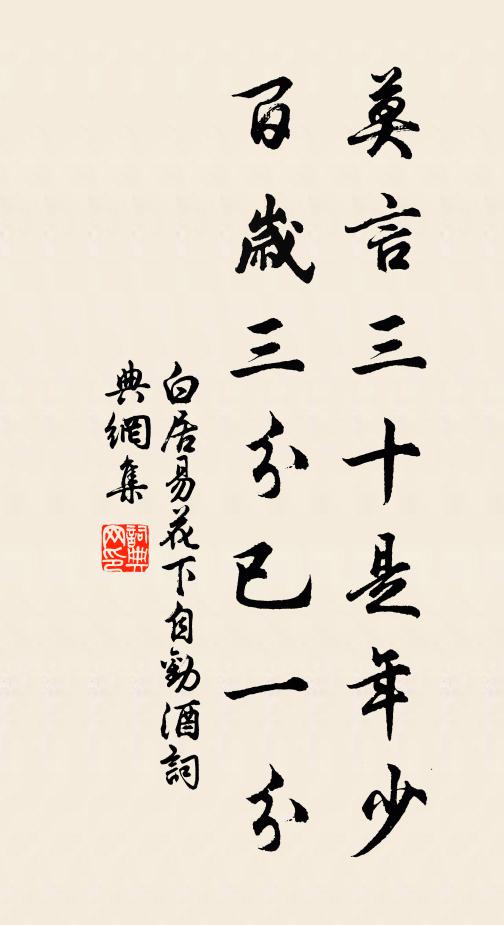 莫言三十是年少
百歲三分已一分
白居易花下自勸酒詞
典網集
詞典网印